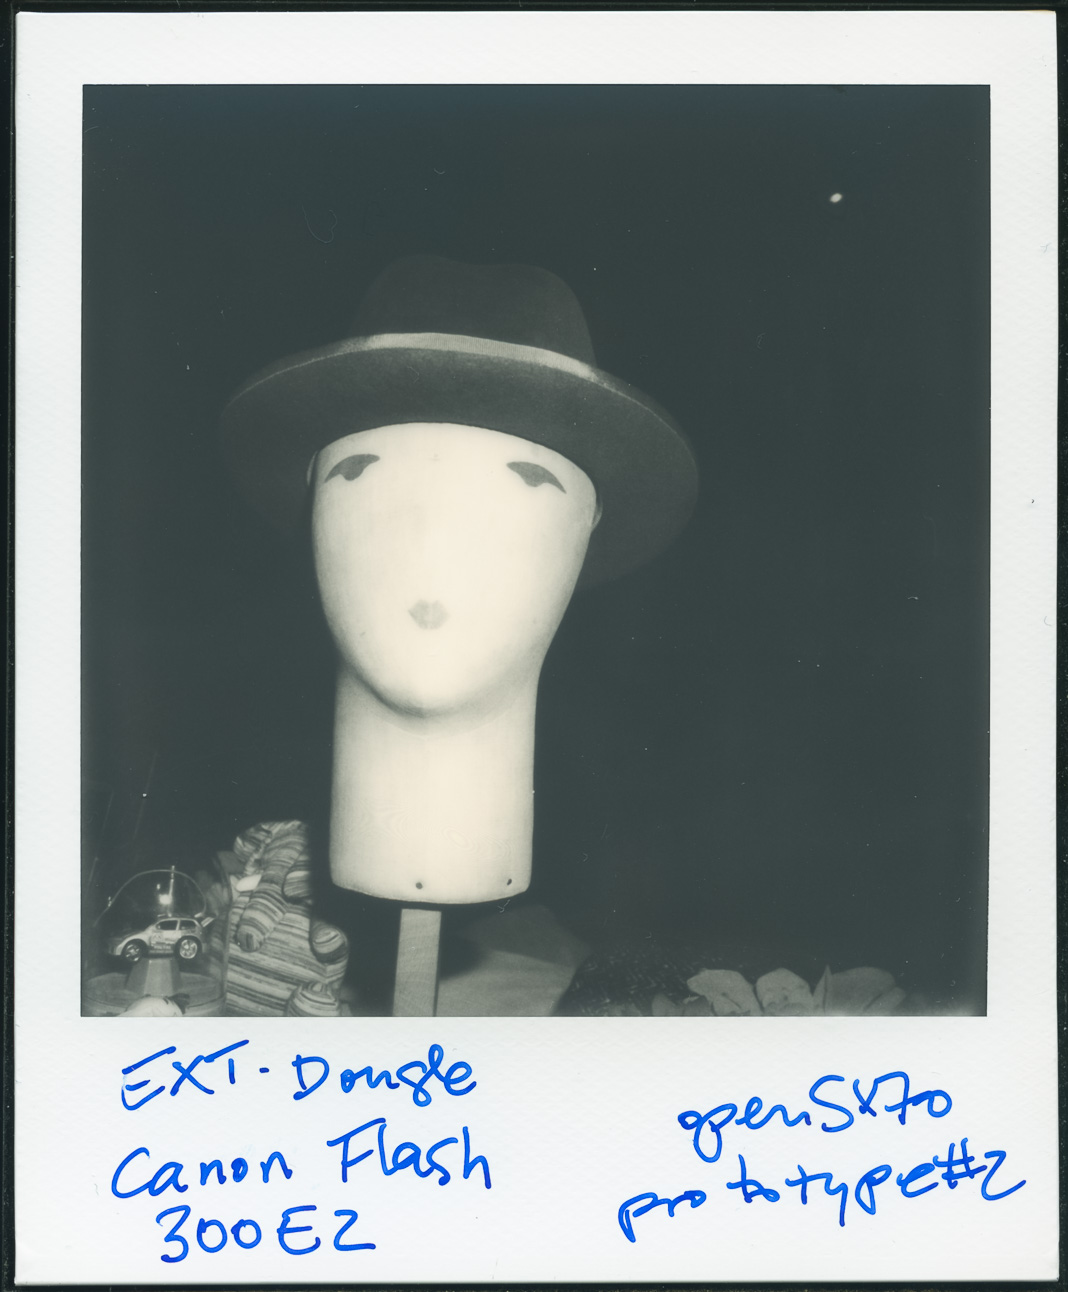 EXT-Dongle
Canon Flash
300EZ
openSX70
prototype#2